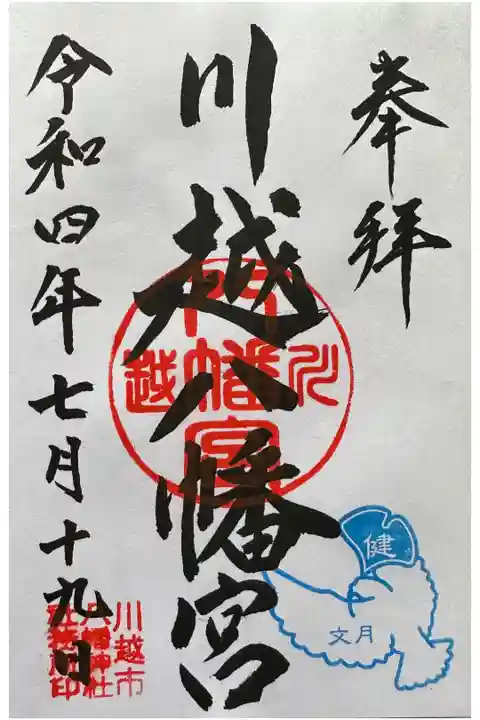 奉拝
川越八幡宮
令和四年七月十九日
川
越
八幡宮
健
文月
川越市
八幡神社
社務所印